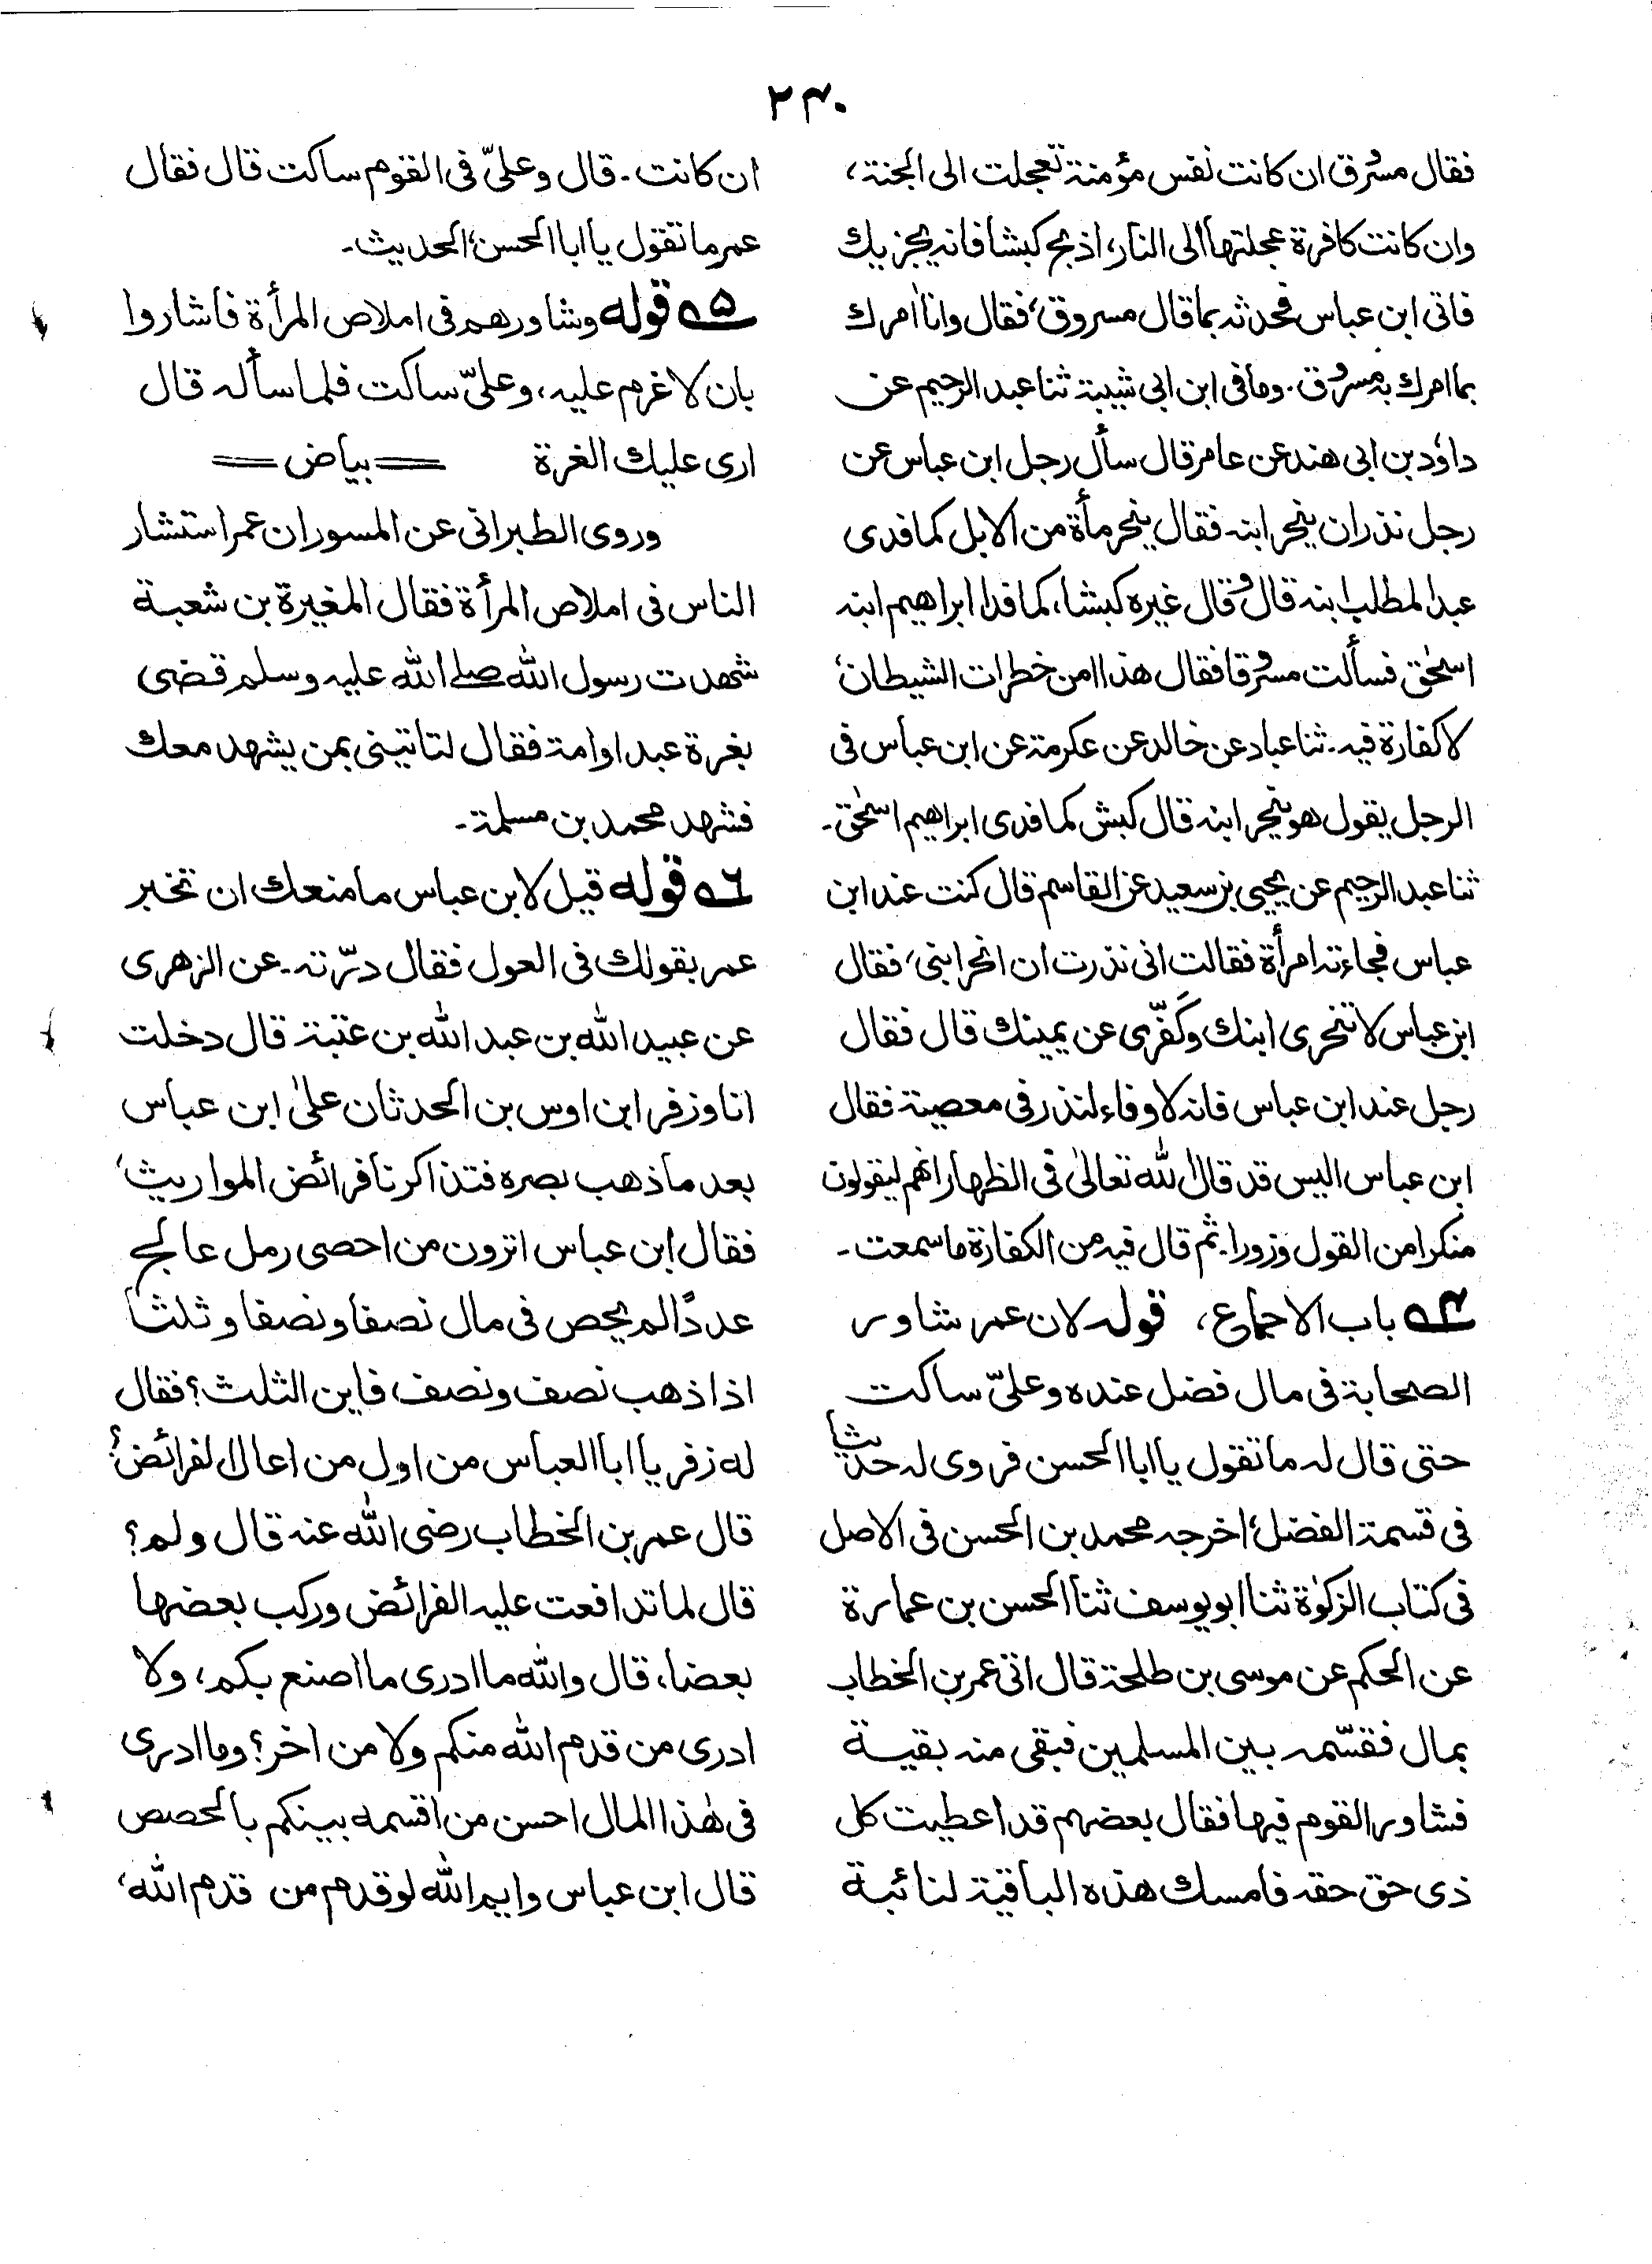 ۲۴۰
فقال مسروق ان كانت نفس مؤمنة تعجلت الى الجنة،
وان كانت كافرة عجلتها الى النار، اذبح كبشا فانه يجزيك
فاتى ابن عباس فحدثه بما قال مسروق، فقال وانا امرك
بما امرك به مسروق. وما فى ابن ابى شيبة ثنا عبد الرحيم عن
داؤد بن ابى هند عن عامر قال سأل رجل ابن عباس عن
رجل نذر ان ينحر ابنه فقال ينحر مأة من الابل كما فدى
عبد المطلب ابنه قال وقال غيره كبشا، كما فدا ابراهيم ابنه
اسحٰق فسألت مسروقا فقال هذا من خطرات الشيطان،
لا كفارة فيه. ثنا عباد عن خالد عن عكرمة عن ابن عباس فى
الرجل يقول هو ينحر ابنه قال كبش كما فدى ابراهيم اسحٰق۔
ثنا عبد الرحيم عن يحيى بن سعيد عن القاسم قال كنت عند ابن
عباس فجاءته امرأة فقالت انى نذرت ان انحر ابنى، فقال
ابن عباس لا تنحرى ابنك وكَفّرى عن يمينك قال فقال
رجل عند ابن عباس فانه لا وفاء لنذر فى معصية فقال
ابن عباس اليس قد قال الله تعالىٰ فى الظهار انهم ليقولون
منكرا من القول وزورا۔ ثم قال فيه من الكفارة ما سمعت۔
۵۴ باب الاجماع، قوله لان عمر شاور
الصحابة فى مال فضل عنده وعلىّ ساكت
حتى قال له ما تقول يا ابا الحسن فروى له حديثا
فى قسمة الفضل، اخرجه محمد بن الحسن فى الاصل
فى كتاب الزكوٰة ثنا ابو يوسف ثنا الحسن بن عمارة
عن الحكم عن موسى بن طلحة قال اتى عمر بن الخطاب
بمال فقسّمه بين المسلمين فبقى منه بقية
فشاور القوم فيها فقال بعضهم قد اعطيت كل
ذى حق حقه فامسك هذه الباقية لنائبة
ان كانت۔ قال وعلىّ فى القوم ساكت قال فقال
عمر ما تقول يا ابا الحسن، الحديث۔
۵۵ قوله وشاورهم فى املاص المرأة فاشاروا
بان لا غرم عليه، وعلىّ ساكت فلما سأله قال
ارى عليك الغرة == بياض ==
وروى الطبرانى عن المسور ان عمر استشار
الناس فى املاص المرأة فقال المغيرة بن شعبة
شهدت رسول الله صلے الله عليه وسلم قضى
بغرة عبد او امة فقال لتاتينى بمن يشهد معك
فشهد محمد بن مسلمة۔
۵۶ قوله قيل لابن عباس ما منعك ان تخبر
عمر بقولك فى العول فقال درّته۔ عن الزهرى
عن عبيد الله بن عبد الله بن عتبة قال دخلت
انا وزفر ابن اوس بن الحدثان علىٰ ابن عباس
بعد ما ذهب بصره فتذاكرنا فرائض المواريث،
فقال ابن عباس اترون من احصى رمل عالج
عددًا لم يحص فى مال نصفا ونصفا وثلثا
اذا ذهب نصف ونصف فاين الثلث؟ فقال
له زفر يا ابا العباس من اول من اعال الفرائض؟
قال عمر بن الخطاب رضى الله عنه قال ولم؟
قال لما تدافعت عليه الفرائض وركب بعضها
بعضا، قال والله ما ادرى ما اصنع بكم، ولا
ادرى من قدم الله منكم ولا من اخر؟ وما ادرى
فى هٰذا المال احسن من اقسمه بينكم بالحصص
قال ابن عباس وايم الله لو قدم من قدم الله،